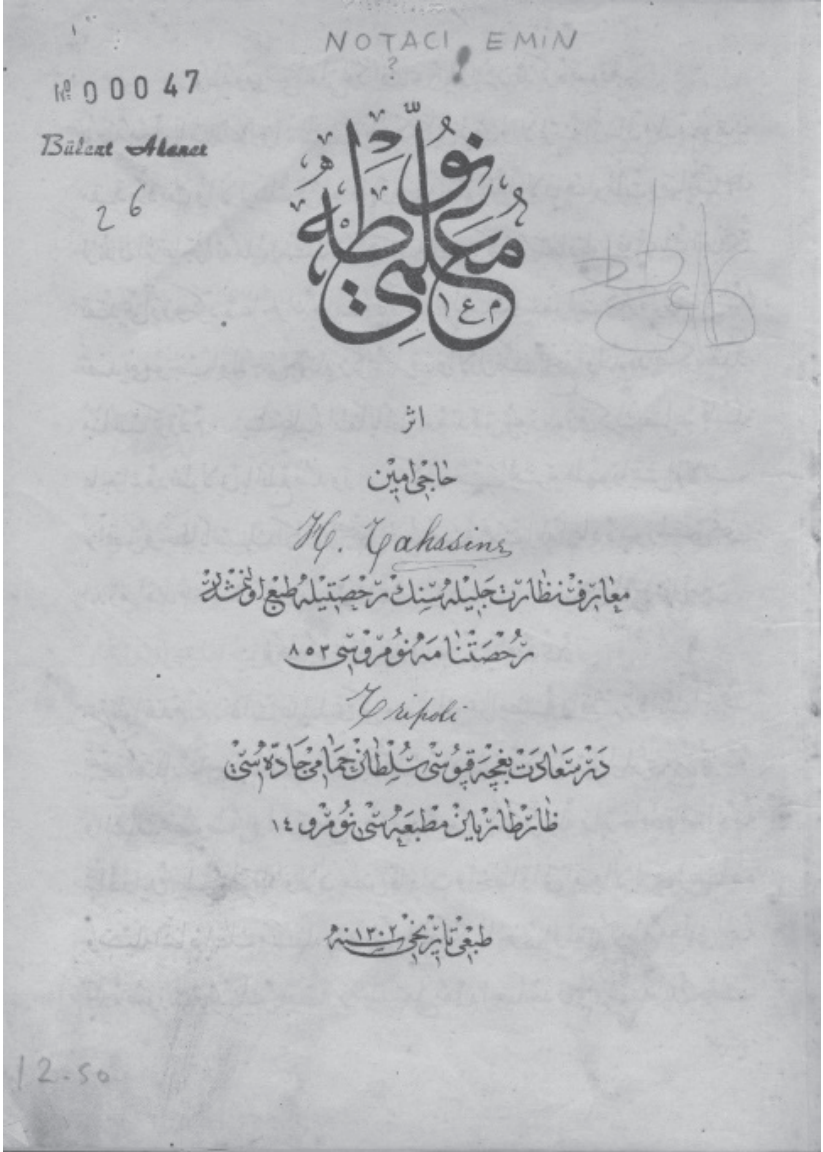 NOTACI EMİN
?
№ 00047
Bülent Alaner
26
نوطه معلمی
م ع ا
اثر
حاجی امین
H. Tahssine
معارف نظارت جلیله سنك رخصتیله طبع اولنمشدر
رخصتنامه نومروسی ٨٥٣
Tripoli
درسعادت بغچه قپوسی سلطان حمامی جاده سی
طارطاریان مطبعه سی نومرو ١٤
طبعی تاریخی سنه ١٣٠٢
12.50